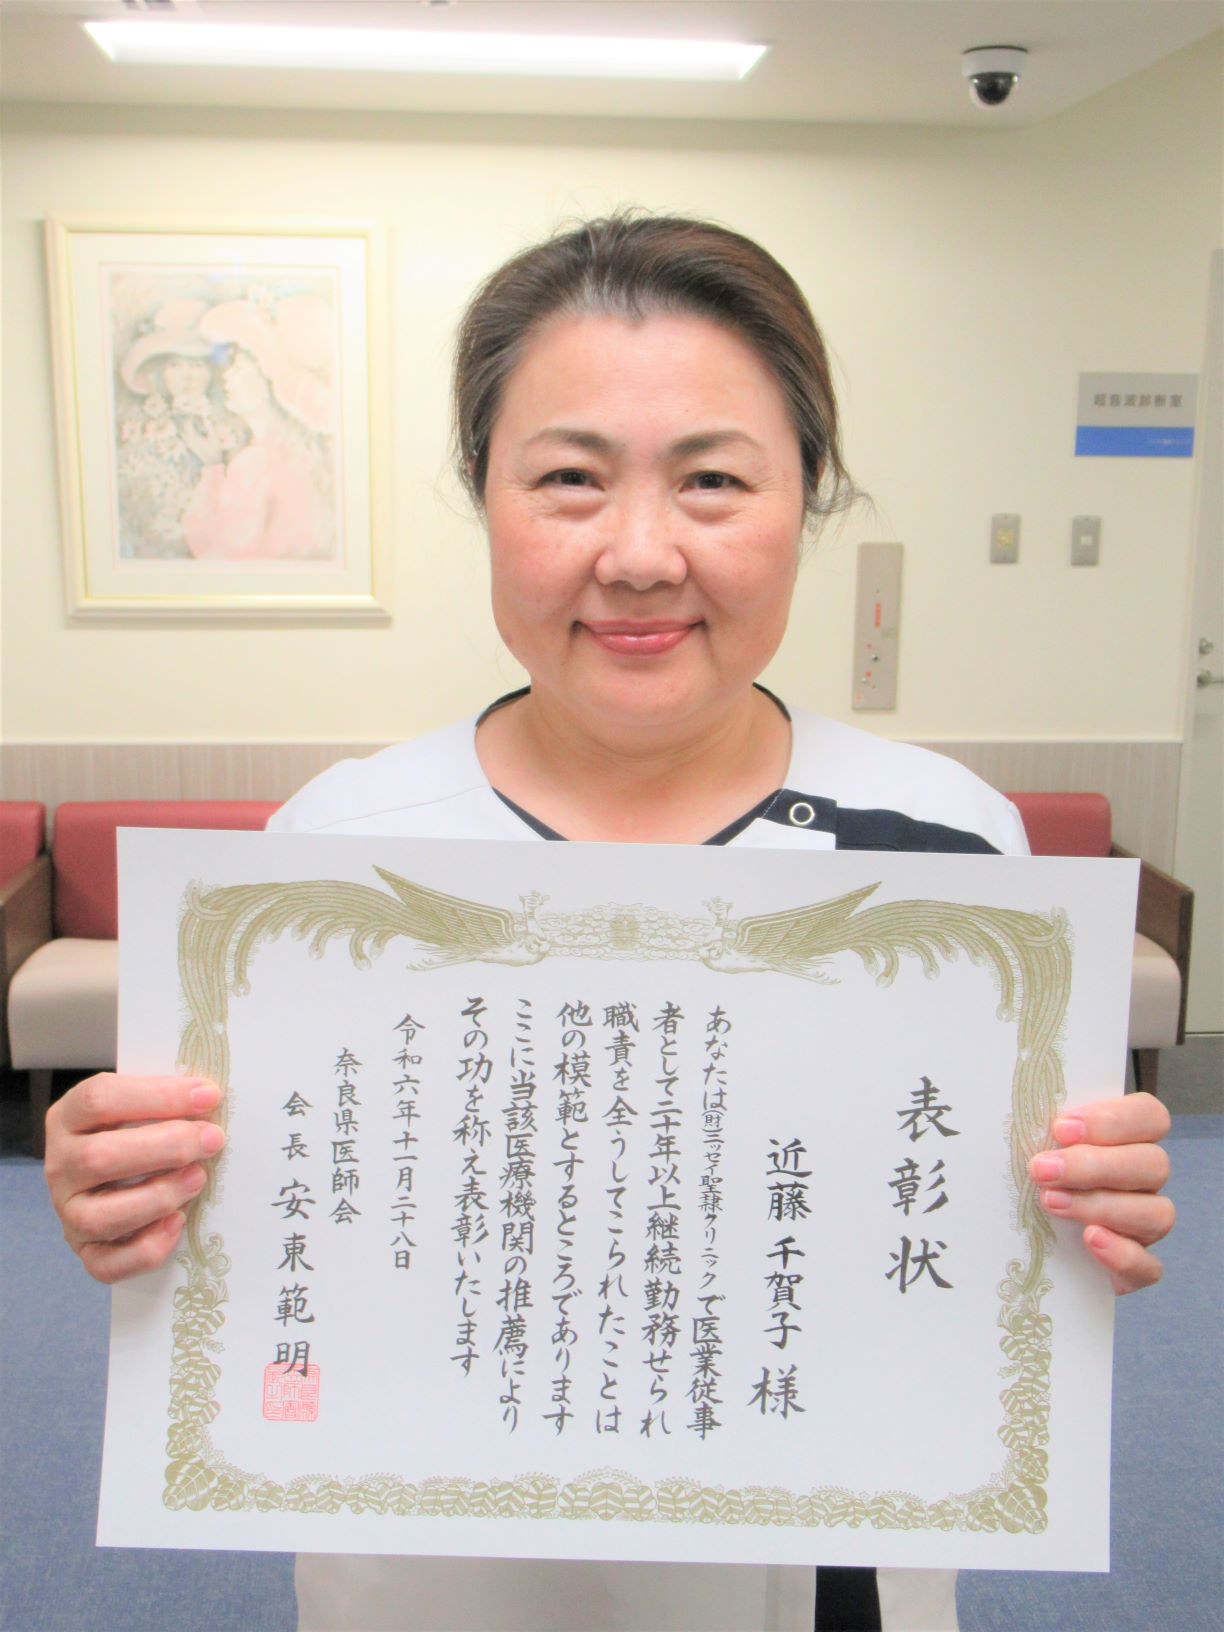 表彰状
近藤千賀子様
あなたは(財)ニッセイ聖隷クリニックで医業従事
者として二十年以上継続勤務せられ
職責を全うしてこられたことは
他の模範とするところであります
ここに当該医療機関の推薦により
その功を称え表彰いたします
令和六年十一月二十八日
奈良県医師会
会長 安東範明
超音波診断室